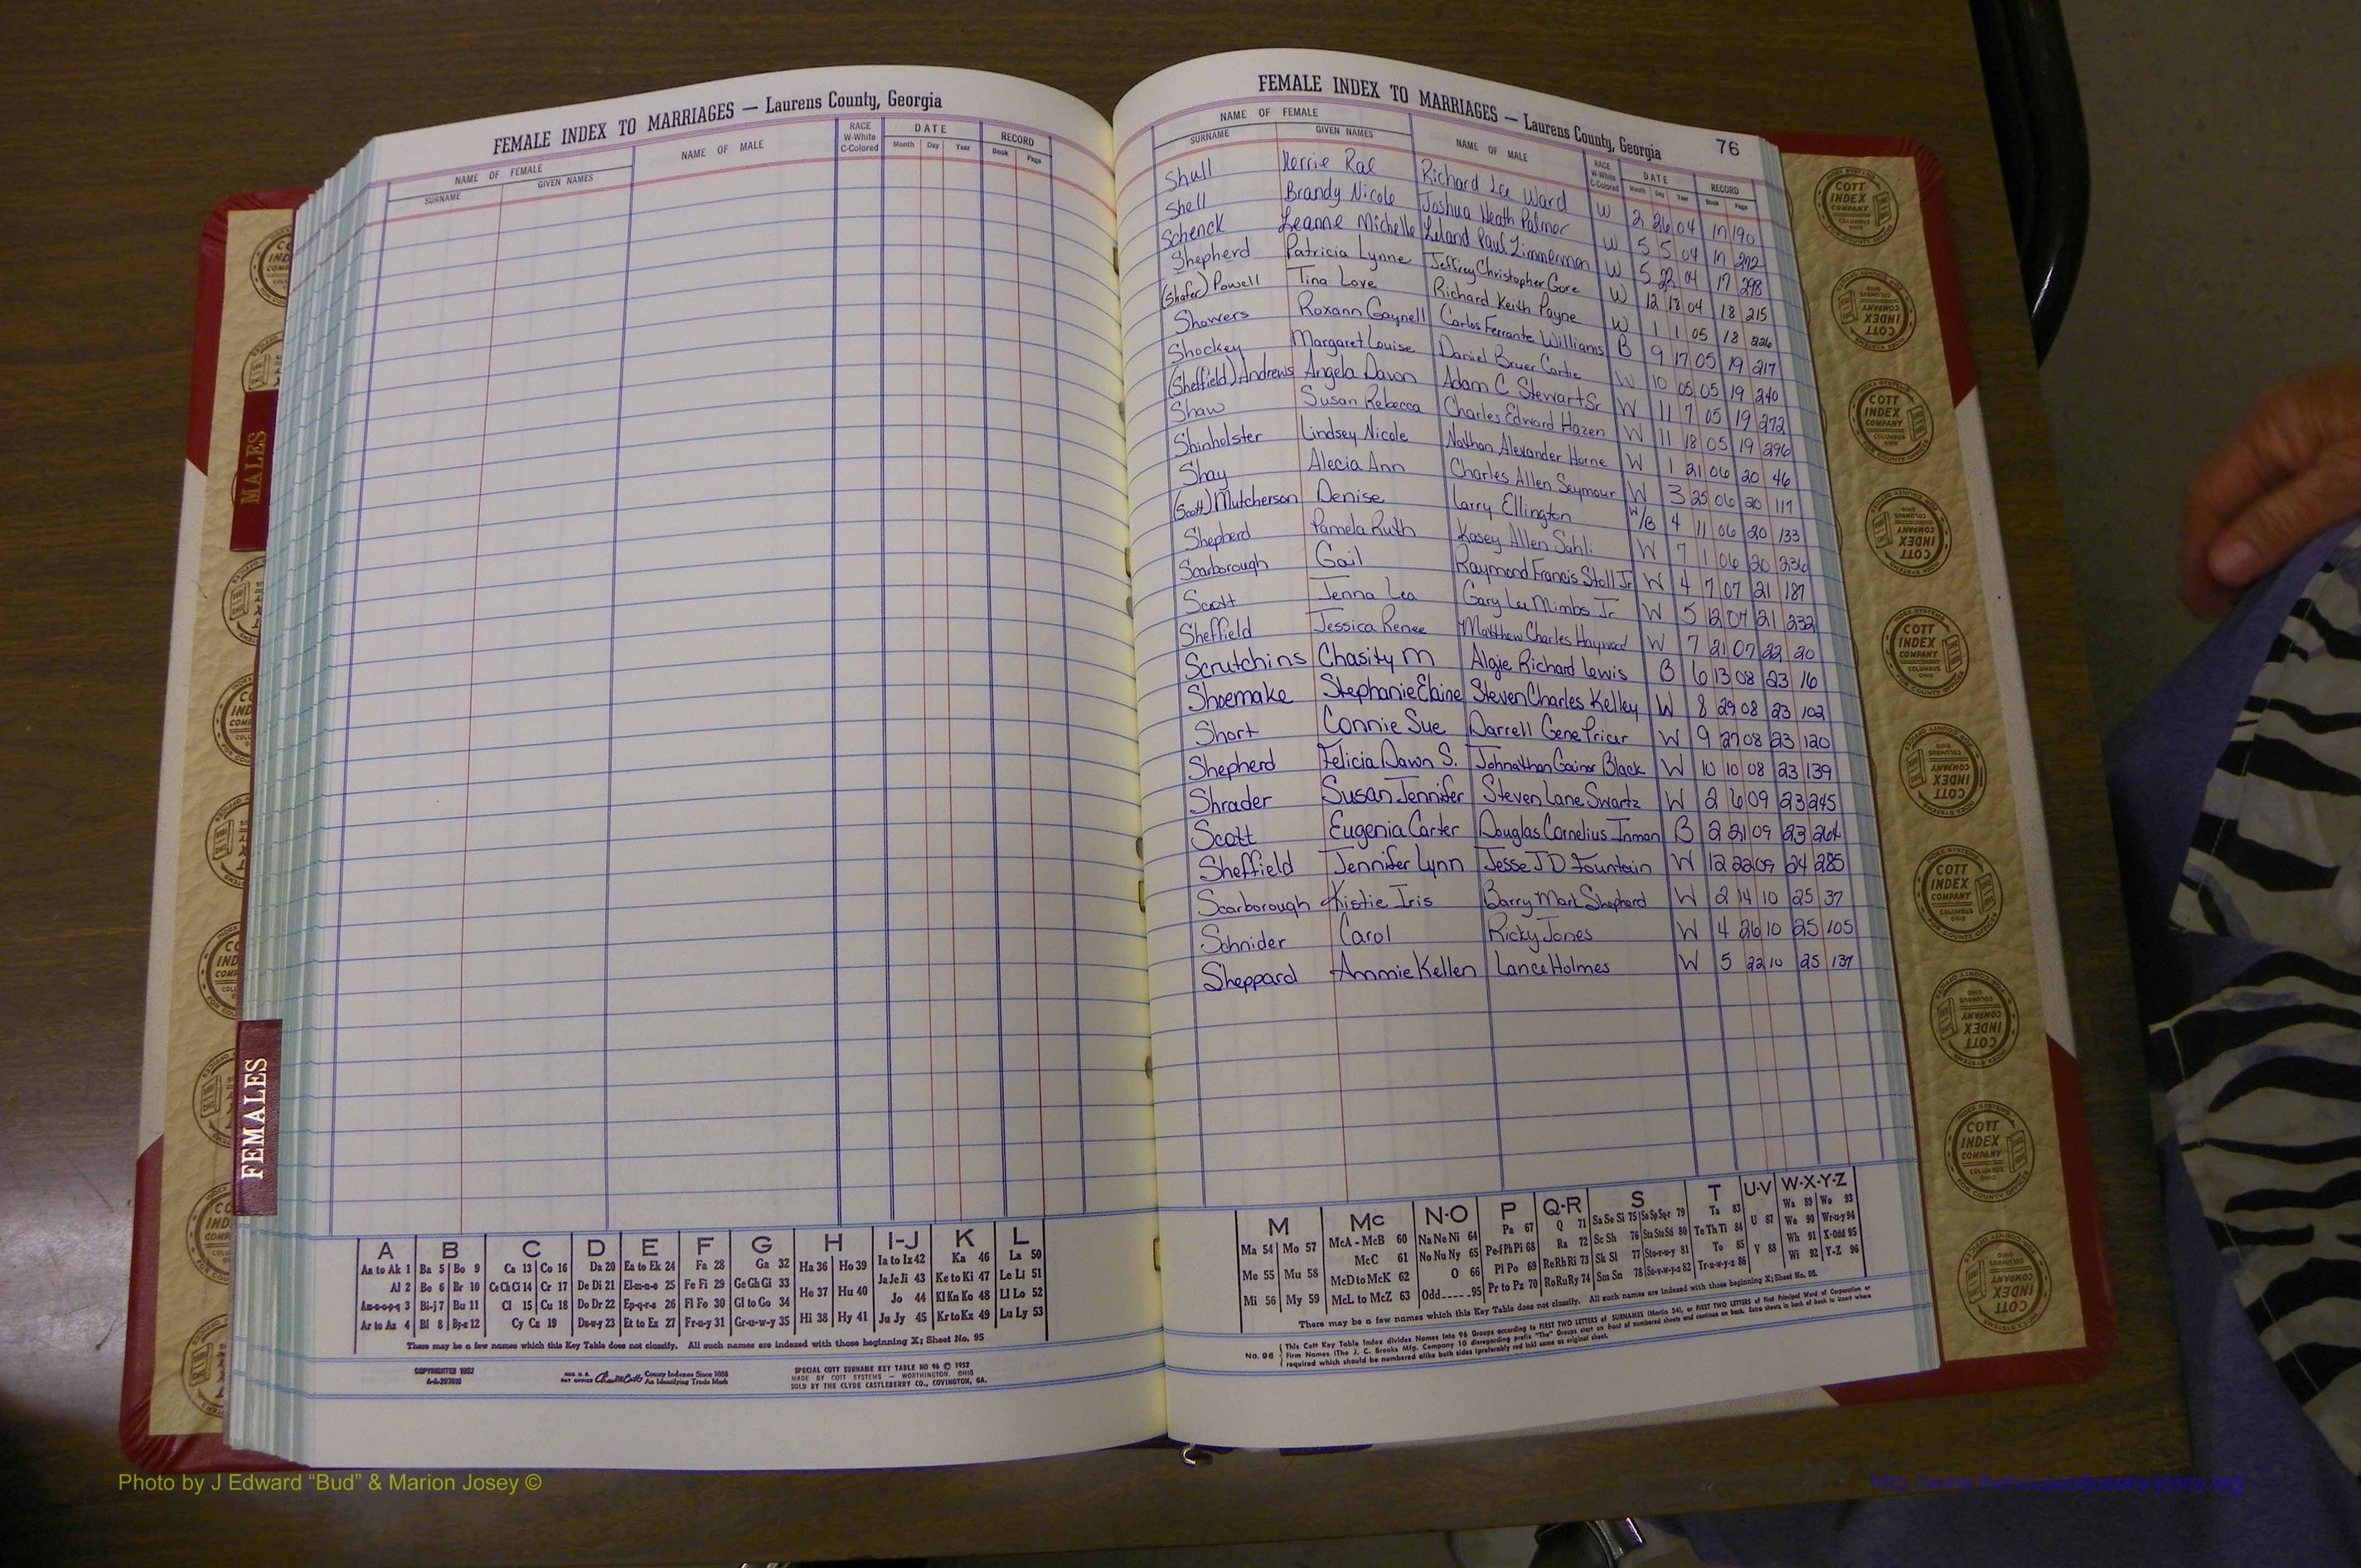 FEMALE INDEX TO MARRIAGES — Laurens County, Georgia
NAME OF FEMALE
SURNAME GIVEN NAMES
NAME OF MALE
RACE W-White C-Colored
DATE
Month Day Year
RECORD
Book Page
FEMALE INDEX TO MARRIAGES — Laurens County, Georgia 76
NAME OF FEMALE
SURNAME GIVEN NAMES
NAME OF MALE
RACE W-White C-Colored
DATE
Month Day Year
RECORD
Book Page
Shull Kerrie Rae Richard Lee Ward W 2 26 04 17 190
Shell Brandy Nicole Joshua Heath Palmer W 5 5 04 17 272
Schenck Leanne Michelle Leland Paul Zimmerman W 5 22 04 17 298
Shepherd Patricia Lynne Jeffrey Christopher Gore W 12 18 04 18 215
(Shafer) Powell Tina Love Richard Keith Payne W 1 1 05 18 226
Showers Roxann Gaynell Carlos Ferrante Williams B 9 17 05 19 217
Shockey Margaret Louise Daniel Bruer W 10 05 05 19 240
(Sheffield) Andrews Angela Dawn Adam C Stewart Sr W 11 7 05 19 272
Shaw Susan Rebecca Charles Edward Hazen W 11 18 05 19 296
Shinholster Lindsey Nicole Nathan Alexander Horne W 1 21 06 20 46
Shay Alecia Ann Charles Allen Seymour W 3 25 06 20 117
(Scott) Mutcherson Denise Larry Ellington W/B 4 11 06 20 133
Shepherd Pamela Ruth Kasey Allen Sahli W 7 1 06 20 236
Scarborough Gail Raymond Francis Stoll Jr W 4 7 07 21 187
Scott Jenna Lea Gary Lee Mimbs Jr W 5 12 07 21 232
Sheffield Jessica Renee Matthew Charles Hayward W 7 21 07 22 20
Scrutchins Chasity M Algie Richard Lewis B 6 13 08 23 16
Shoemake Stephanie Elaine Steven Charles Kelley W 8 29 08 23 102
Short Connie Sue Darrell Gene Pricer W 9 27 08 23 120
Shepherd Felicia Dawn S. Johnathan Gainor Black W 10 10 08 23 139
Shrader Susan Jennifer Steven Lane Swartz W 2 6 09 23 245
Scott Eugenia Carter Douglas Cornelius Inman B 2 21 09 23 264
Sheffield Jennifer Lynn Jesse J D Fountain W 12 22 09 24 285
Scarborough Kistie Iris Barry Mark Shepherd W 2 14 10 25 37
Schnider Carol Ricky Jones W 4 26 10 25 105
Sheppard Ammie Kellen Lance Holmes W 5 22 10 25 137
MALES
FEMALES
A B C D E F G H I-J K L
Aa to Ak 1 Ba 5 Bo 9 Ca 13 Co 16 Da 20 Ea to Ek 24 Fa 28 Ga 32 Ha 36 Ho 39 Ia to Iz 42 Ka 46 La 50
Al 2 Be 6 Br 10 Ce Ch Ci 14 Cr 17 De Di 21 El-m-n-o 25 Fe Fi 29 Ge Gh Gi 33 He 37 Hu 40 Ja Je Ji 43 Ke to Ki 47 Le Li 51
Am-n-o-p-q 3 Bi-j 7 Bu 11 Cl 15 Cu 18 Do Dr 22 Ep-q-r-s 26 Fl Fo 30 Gl to Go 34 Jo 44 Kl Kn Ko 48 Ll Lo 52
Ar to Az 4 Bl 8 By-z 12 Cy Cz 19 Du-w-y 23 Et to Ez 27 Fr-u-y 31 Gr-u-w-y 35 Hi 38 Hy 41 Ju Jy 45 Kr to Kz 49 Lu Ly 53
There may be a few names which this Key Table does not classify. All such names are indexed with those beginning X; Sheet No. 95
REG. U.S. PAT OFFICE County Indexes Since 1888 An Identifying Trade Mark
SPECIAL COTT SURNAME KEY TABLE NO 96 © 1952
MADE BY COTT SYSTEMS — WORTHINGTON, OHIO
SOLD BY THE CLYDE CASTLEBERRY CO., COVINGTON, GA.
M Mc N-O P Q-R S T U-V W-X-Y-Z
Ma 54 Mo 57 McA - McB 60 Na Ne Ni 64 Pa 67 Q 71 Sa Se Si 75 So Sp Sq-r 79 Ta 83 U 87 Wa 89 Wo 93
Me 55 Mu 58 McC 61 No Nu Ny 65 Pe-f Ph Pi 68 Ra 72 Sc Sh 76 Sta Ste Sti 80 Te Th Ti 84 V 88 We 90 Wr-u-y 94
McD to McK 62 O 66 Pl Po 69 Re Rh Ri 73 Sk Sl 77 Sto-r-u-y 81 To 85 Wh 91 X-Odd 95
Mi 56 My 59 McL to McZ 63 Odd-----95 Pr to Pz 70 Ro Ru Ry 74 Sm Sn 78 Su-v-w-y-z 82 Tr-u-w-y-z 86 Wi 92 Y-Z 96
There may be a few names which this Key Table does not classify. All such names are indexed with those beginning X; Sheet No. 95.
No. 96 This Cott Key Table Index divides Names into 96 Groups according to FIRST TWO LETTERS of SURNAMES (Martin 54), or FIRST TWO LETTERS of First Principal Word of Corporation or
Firm Names (The J. C. Brooks Mfg. Company 10 disregarding prefix "The") Groups start on front of numbered sheets and continue on back. Extra sheets in back of book to insert where
required which should be numbered alike both sides (preferably red ink) same as original sheet.
COTT INDEX COMPANY
COLUMBUS OHIO
INDEX SYSTEMS
FOR COUNTY OFFICES
Photo by J Edward “Bud” & Marion Josey ©
http://www.thehouseofjossey-josey.org